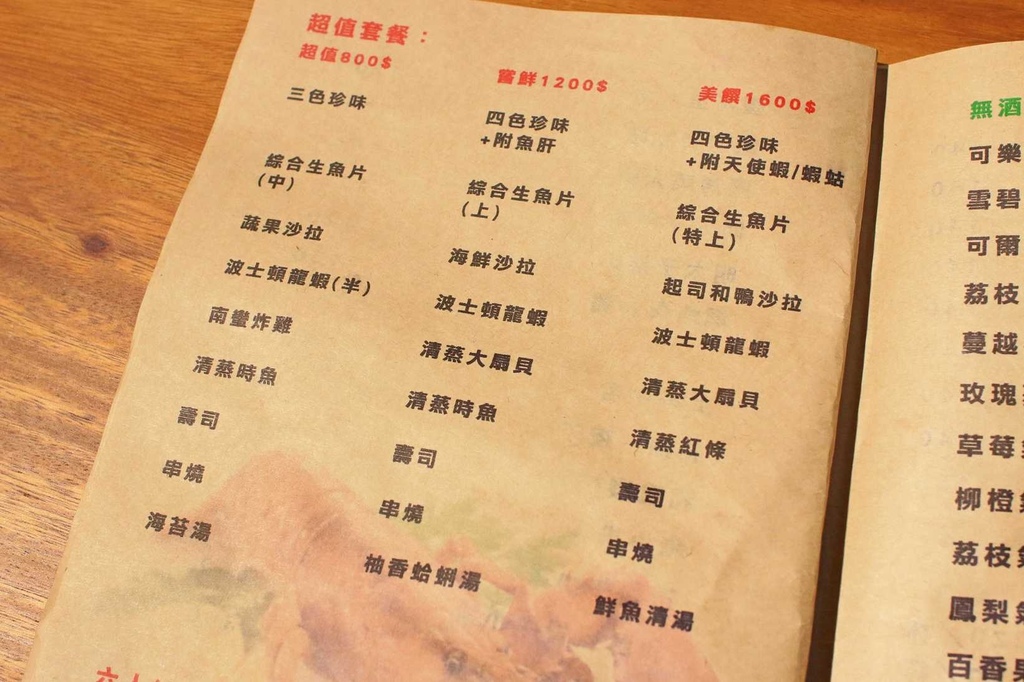 超值套餐：
超值800$
三色珍味
綜合生魚片
(中)
蔬果沙拉
波士頓龍蝦(半)
南蠻炸雞
清蒸時魚
壽司
串燒
海苔湯
嚐鮮1200$
四色珍味
+附魚肝
綜合生魚片
(上)
海鮮沙拉
波士頓龍蝦
清蒸大扇貝
清蒸時魚
壽司
串燒
柚香蛤蜊湯
美饌1600$
四色珍味
+附天使蝦/蝦蛄
綜合生魚片
(特上)
起司和鴨沙拉
波士頓龍蝦
清蒸大扇貝
清蒸紅條
壽司
串燒
鮮魚清湯
無酒
可樂
雪碧
可爾
荔枝
蔓越
玫瑰
草莓
柳橙
荔枝
鳳梨
百香果